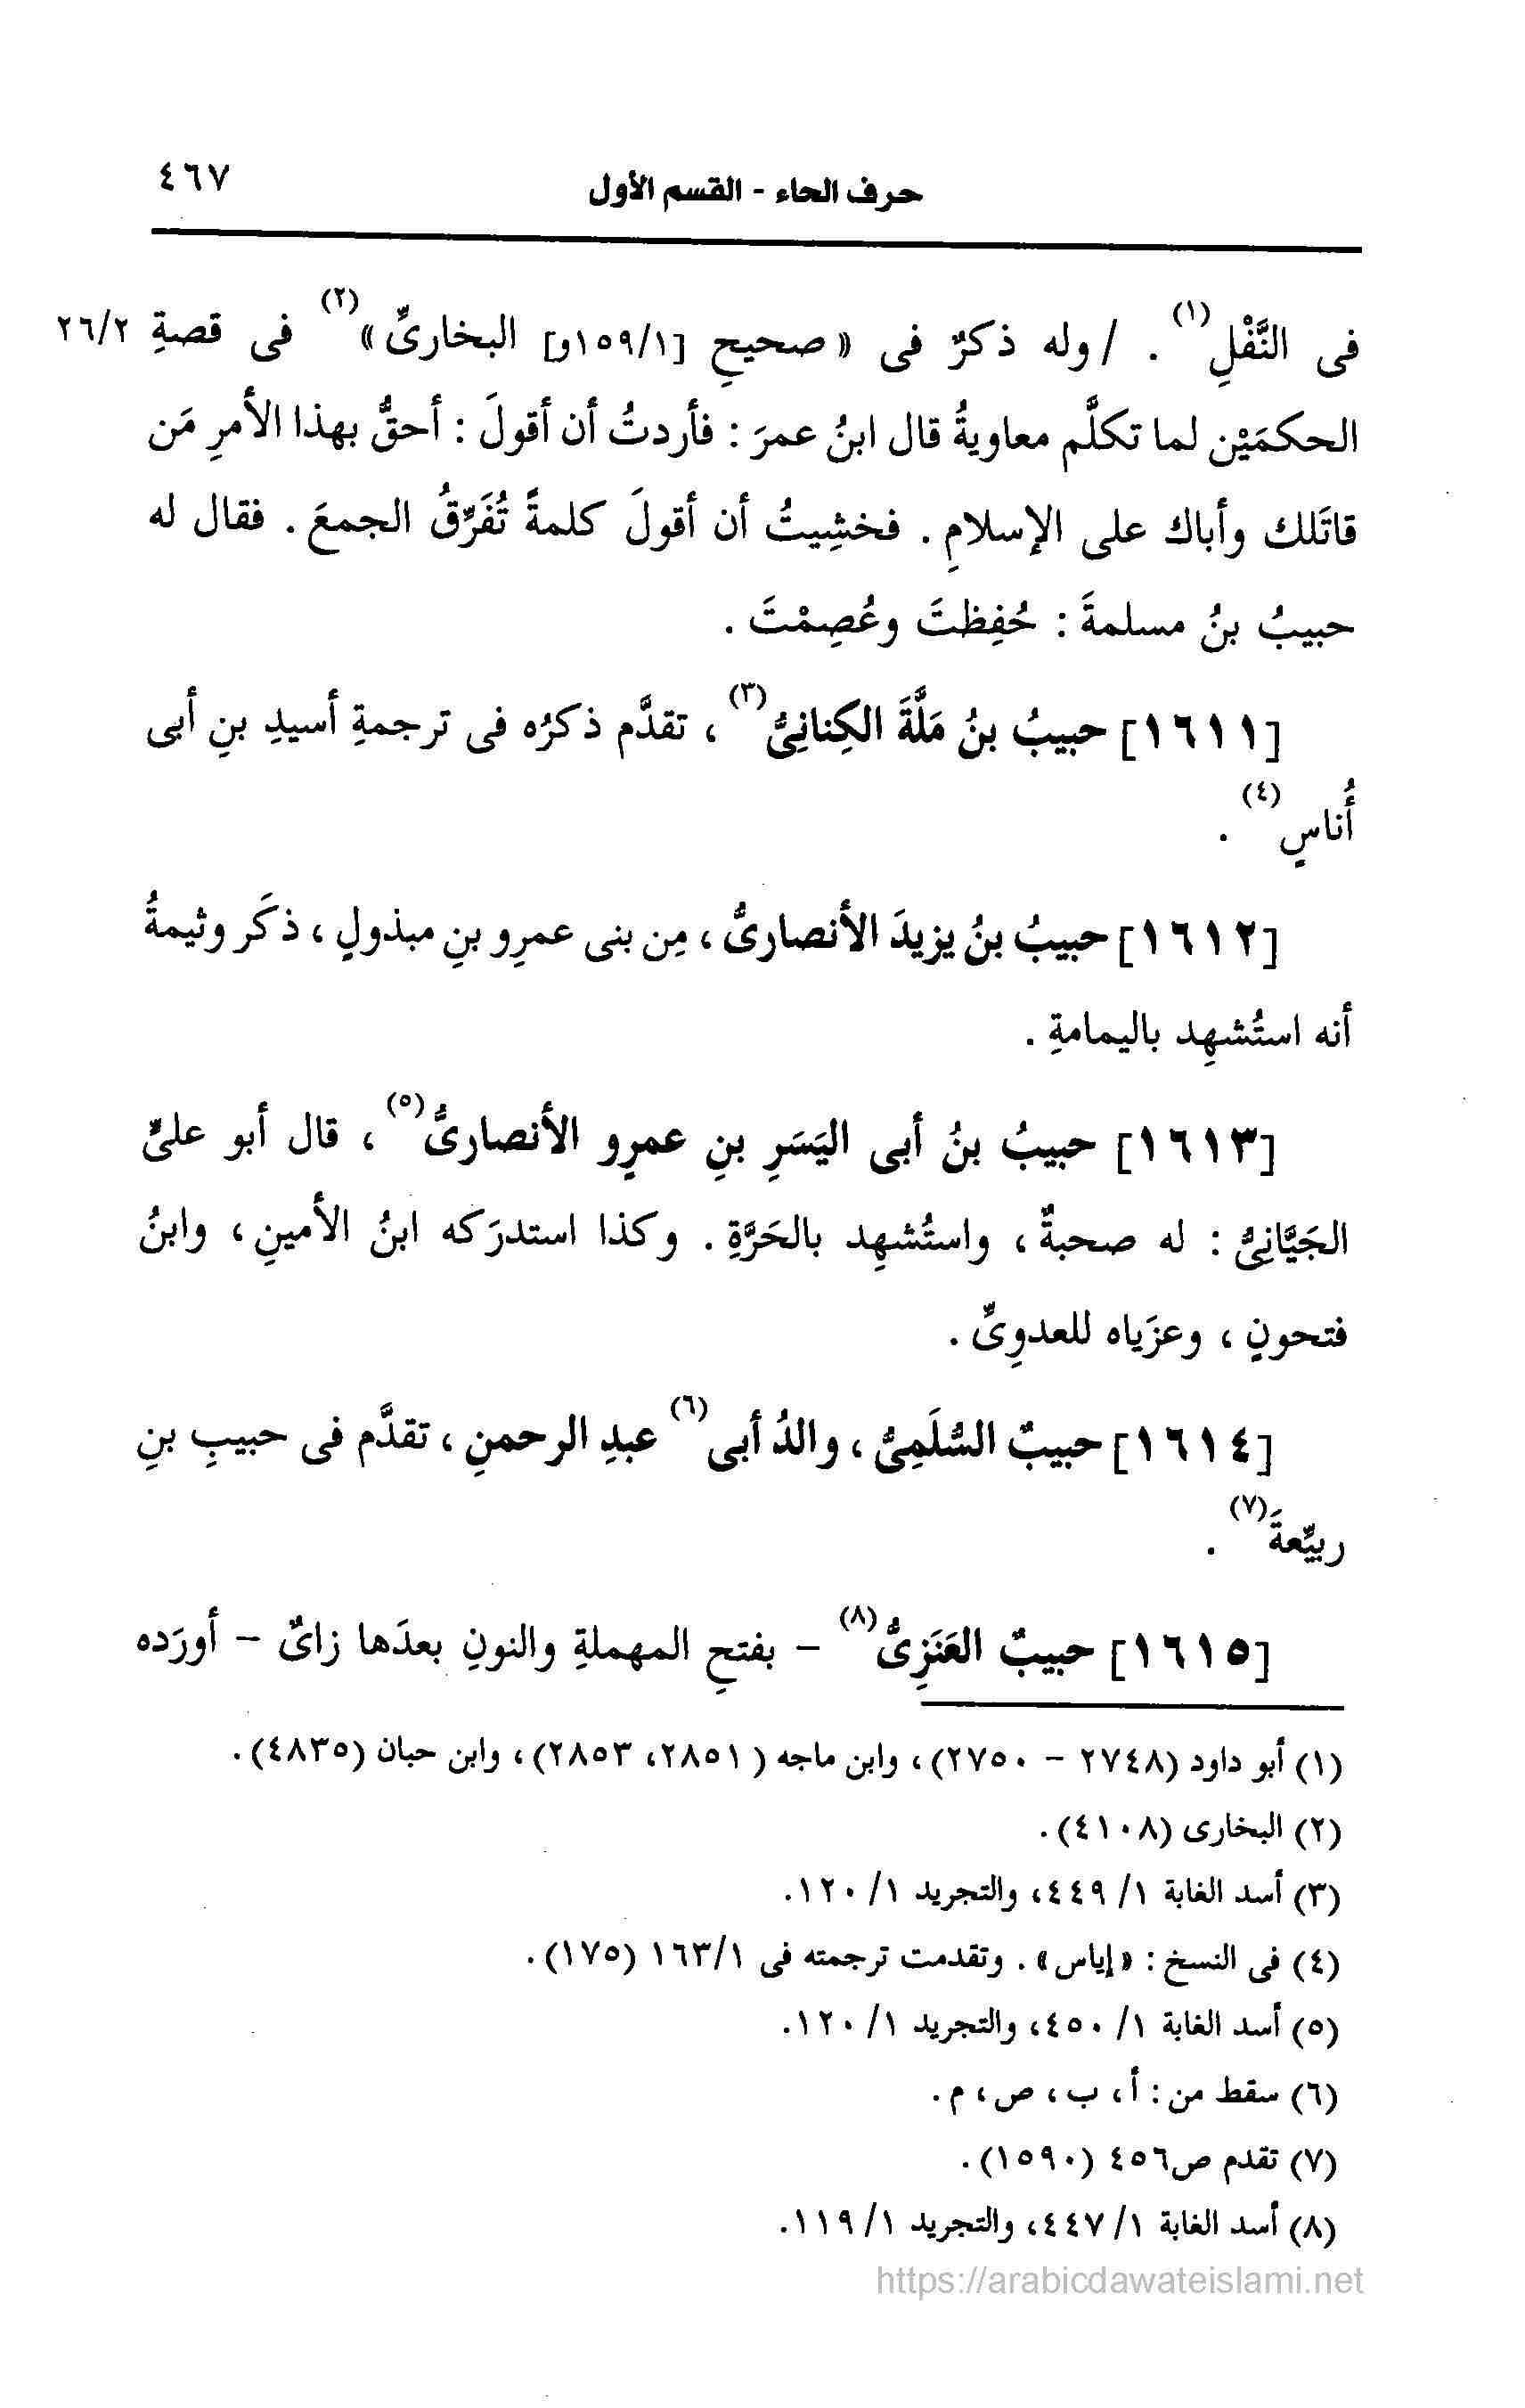 حرف الحاء - القسم الأول ٤٦٧
فى النَّفْلِ(١) . / وله ذكرٌ فى « صحيحِ [١/١٥٩و] البخارىِّ »(٢) فى قصةِ ٢٦/٢
الحكمَيْن لما تكلَّم معاويةُ قال ابنُ عمرَ : فأردتُ أن أقولَ : أحقُّ بهذا الأمرِ مَن
قاتَلك وأباك على الإسلامِ . فخشِيتُ أن أقولَ كلمةً تُفَرِّقُ الجمعَ . فقال له
حبيبُ بنُ مسلمةَ : حُفِظتَ وعُصِمْتَ .
[١٦١١] حبيبُ بنُ مَلَّةَ الكِنانِىُّ(٣) ، تقدَّم ذكرُه فى ترجمةِ أسيدِ بنِ أبى
أُناسٍ(٤) .
[١٦١٢] حبيبُ بنُ يزيدَ الأنصارىُّ ، مِن بنى عمرِو بنِ مبذولٍ ، ذكَر وثيمةُ
أنه استُشهِد باليمامةِ .
[١٦١٣] حبيبُ بنُ أبى اليَسَرِ بنِ عمرٍو الأنصارىُّ(٥) ، قال أبو علىٍّ
الجَيَّانِىُّ : له صحبةٌ ، واستُشهِد بالحَرَّةِ . وكذا استدرَكه ابنُ الأمينِ ، وابنُ
فتحونٍ ، وعزَياه للعدوِىِّ .
[١٦١٤] حبيبٌ السُّلَمِىُّ ، والدُ أبى(٦) عبدِ الرحمنِ ، تقدَّم فى حبيبِ بنِ
ربيِّعةَ(٧) .
[١٦١٥] حبيبٌ العَنَزِىُّ(٨) - بفتحِ المهملةِ والنونِ بعدَها زاىٌ - أورَده
(١) أبو داود (٢٧٤٨ - ٢٧٥٠) ، وابن ماجه ( ٢٨٥١، ٢٨٥٣) ، وابن حبان (٤٨٣٥) .
(٢) البخارى (٤١٠٨) .
(٣) أسد الغابة ١/ ٤٤٩، والتجريد ١/ ١٢٠.
(٤) فى النسخ : « إياس » . وتقدمت ترجمته فى ١٦٣/١ (١٧٥) .
(٥) أسد الغابة ١/ ٤٥٠، والتجريد ١/ ١٢٠.
(٦) سقط من : أ ، ب ، ص ، م .
(٧) تقدم ص٤٥٦ (١٥٩٠) .
(٨) أسد الغابة ١/ ٤٤٧، والتجريد ١/ ١١٩.
https://arabicdawateislami.net